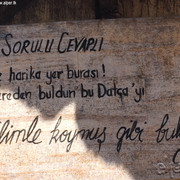 SORULU CEVAPLI
harika yer burası!
reden buldun bu Datça'yı
limle koymuş gibi bul